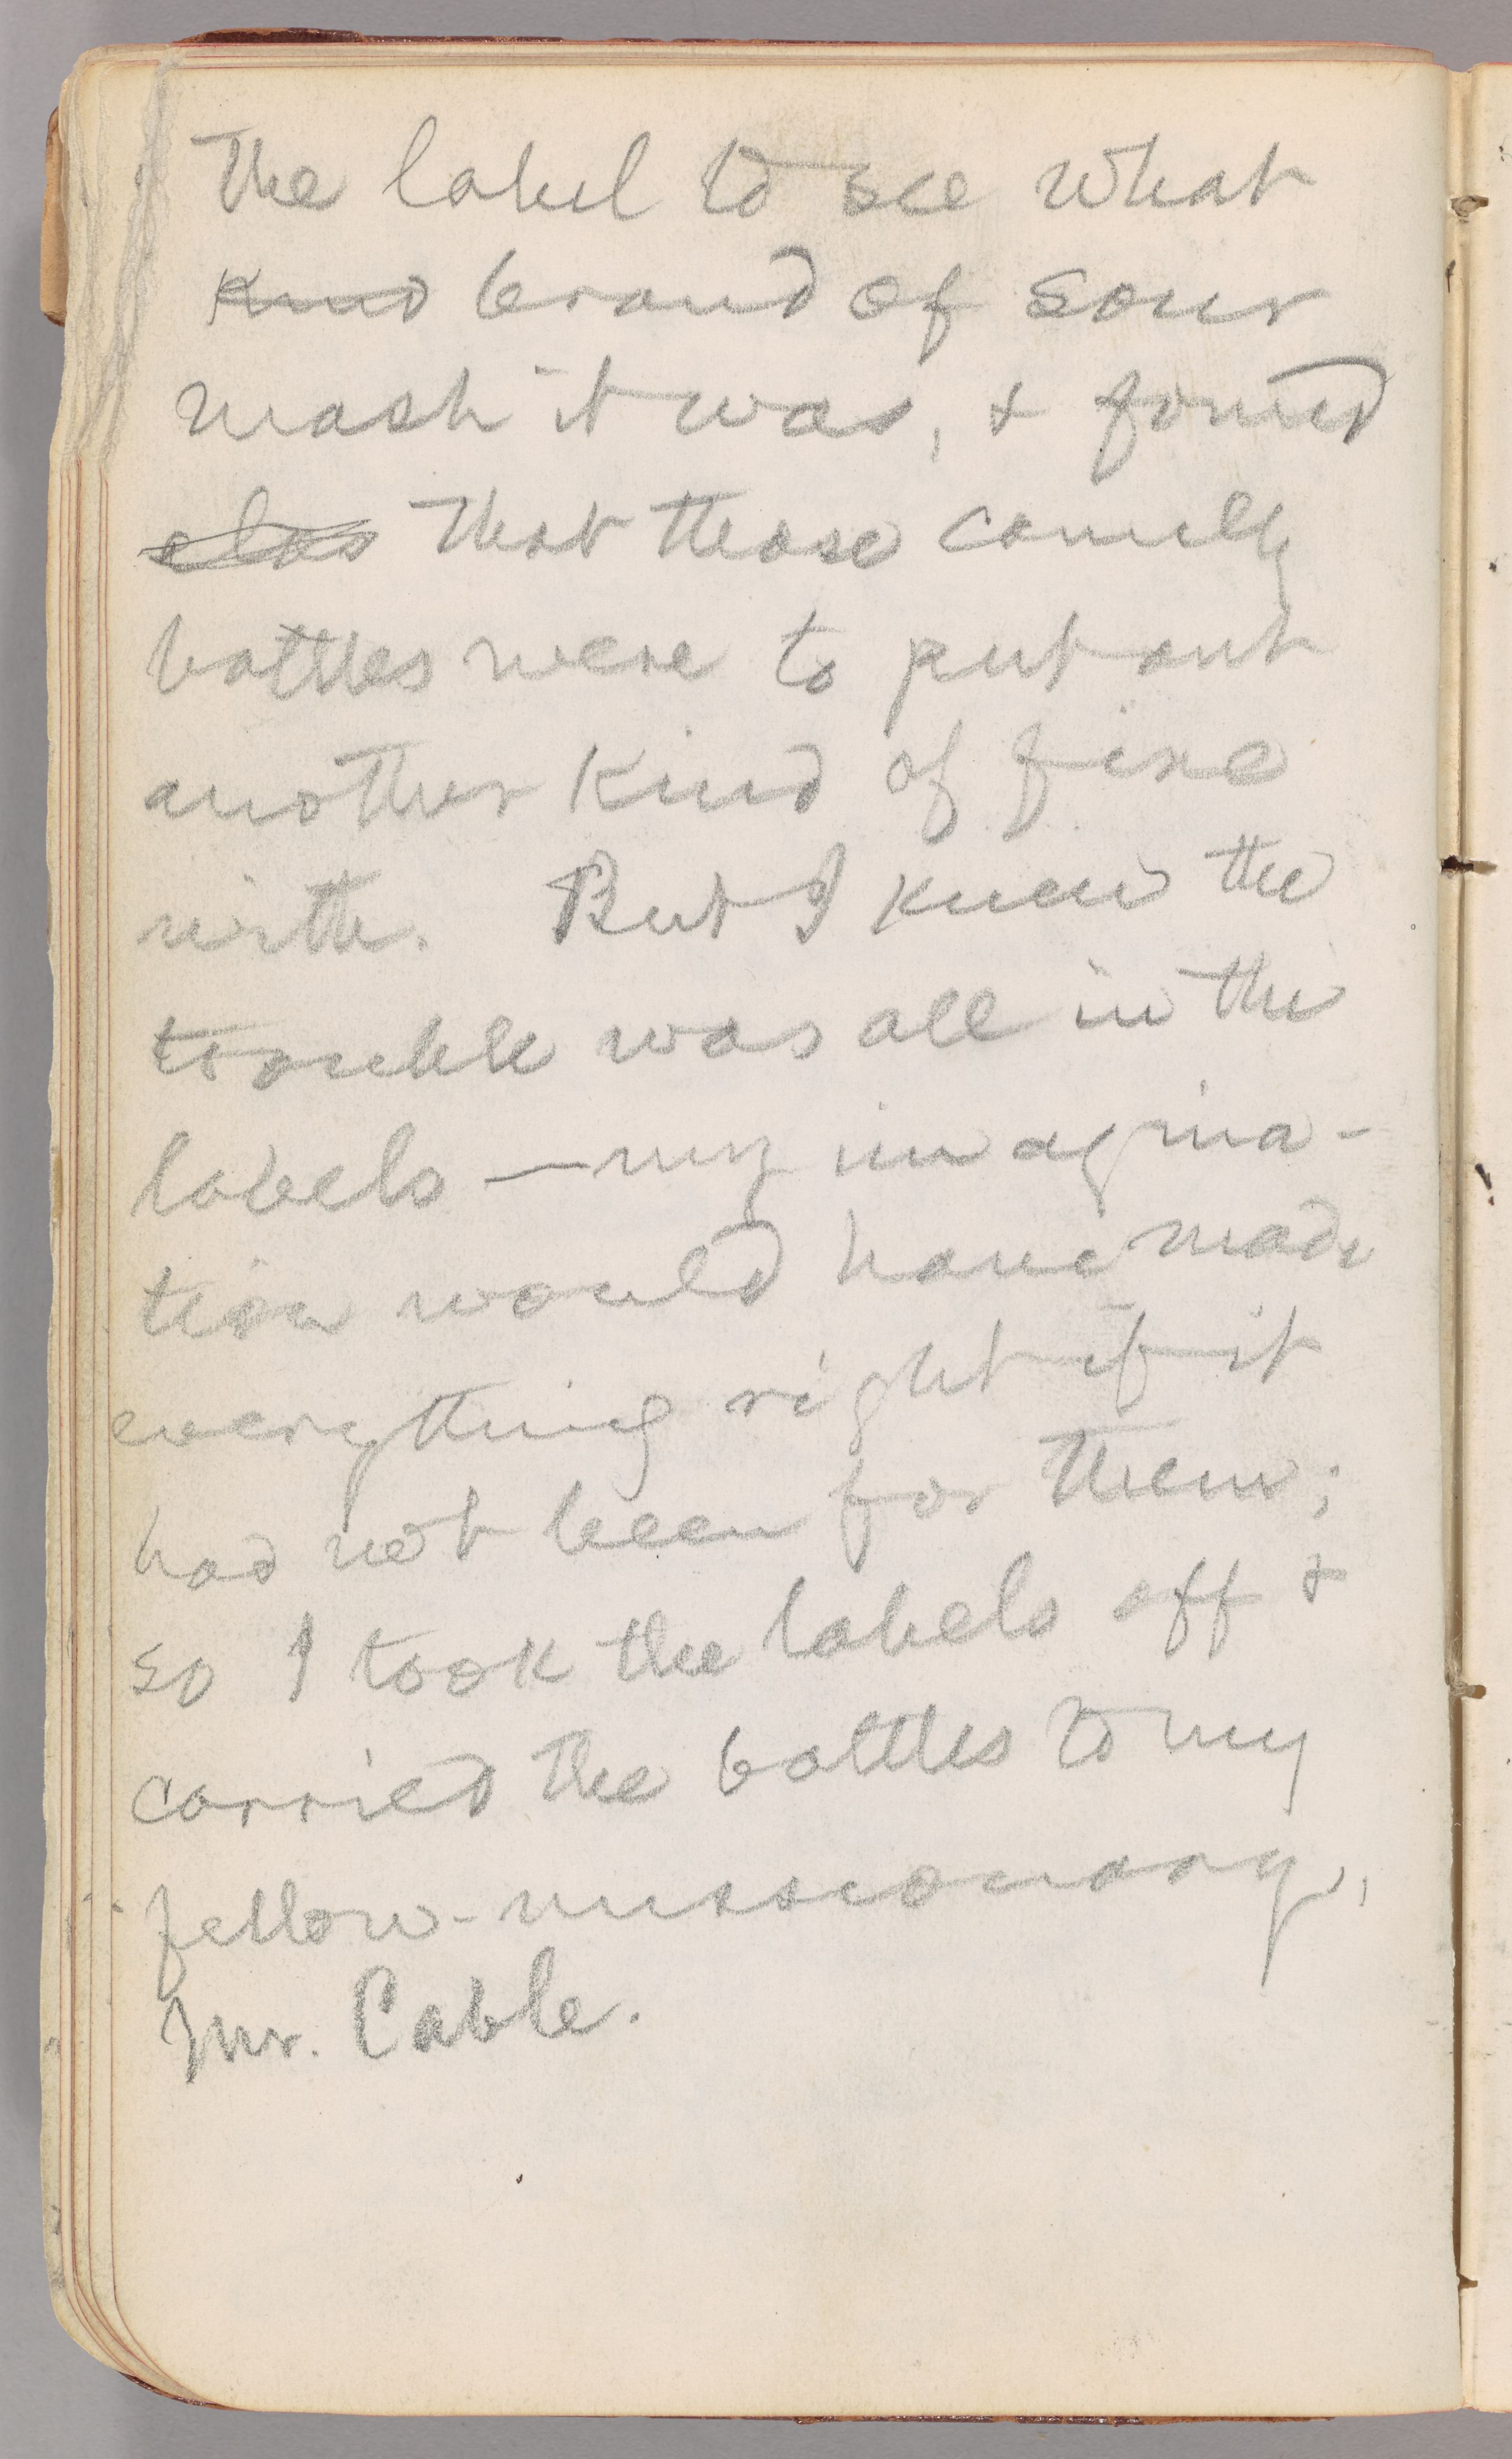 the label to see what
kind brand of sour
mash it was, & found
that those comely
bottles were to put out
another kind of fire
with. But I knew the
trouble was all in the
labels — my imagina-
tion would have made
everything right if it
had not been for them;
so I took the labels off &
carried the bottles to my
fellow-missionary,
Mr. Cable.